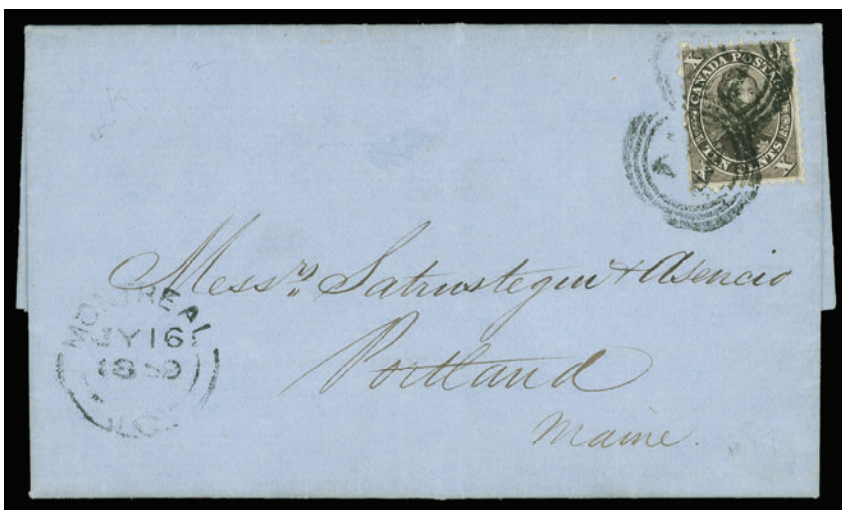 X X
CANADA POSTAGE
TEN CENTS
X X
Messrs Satrustegui & Asencio
Portland
Maine.
MONTREAL
JY 16
1859